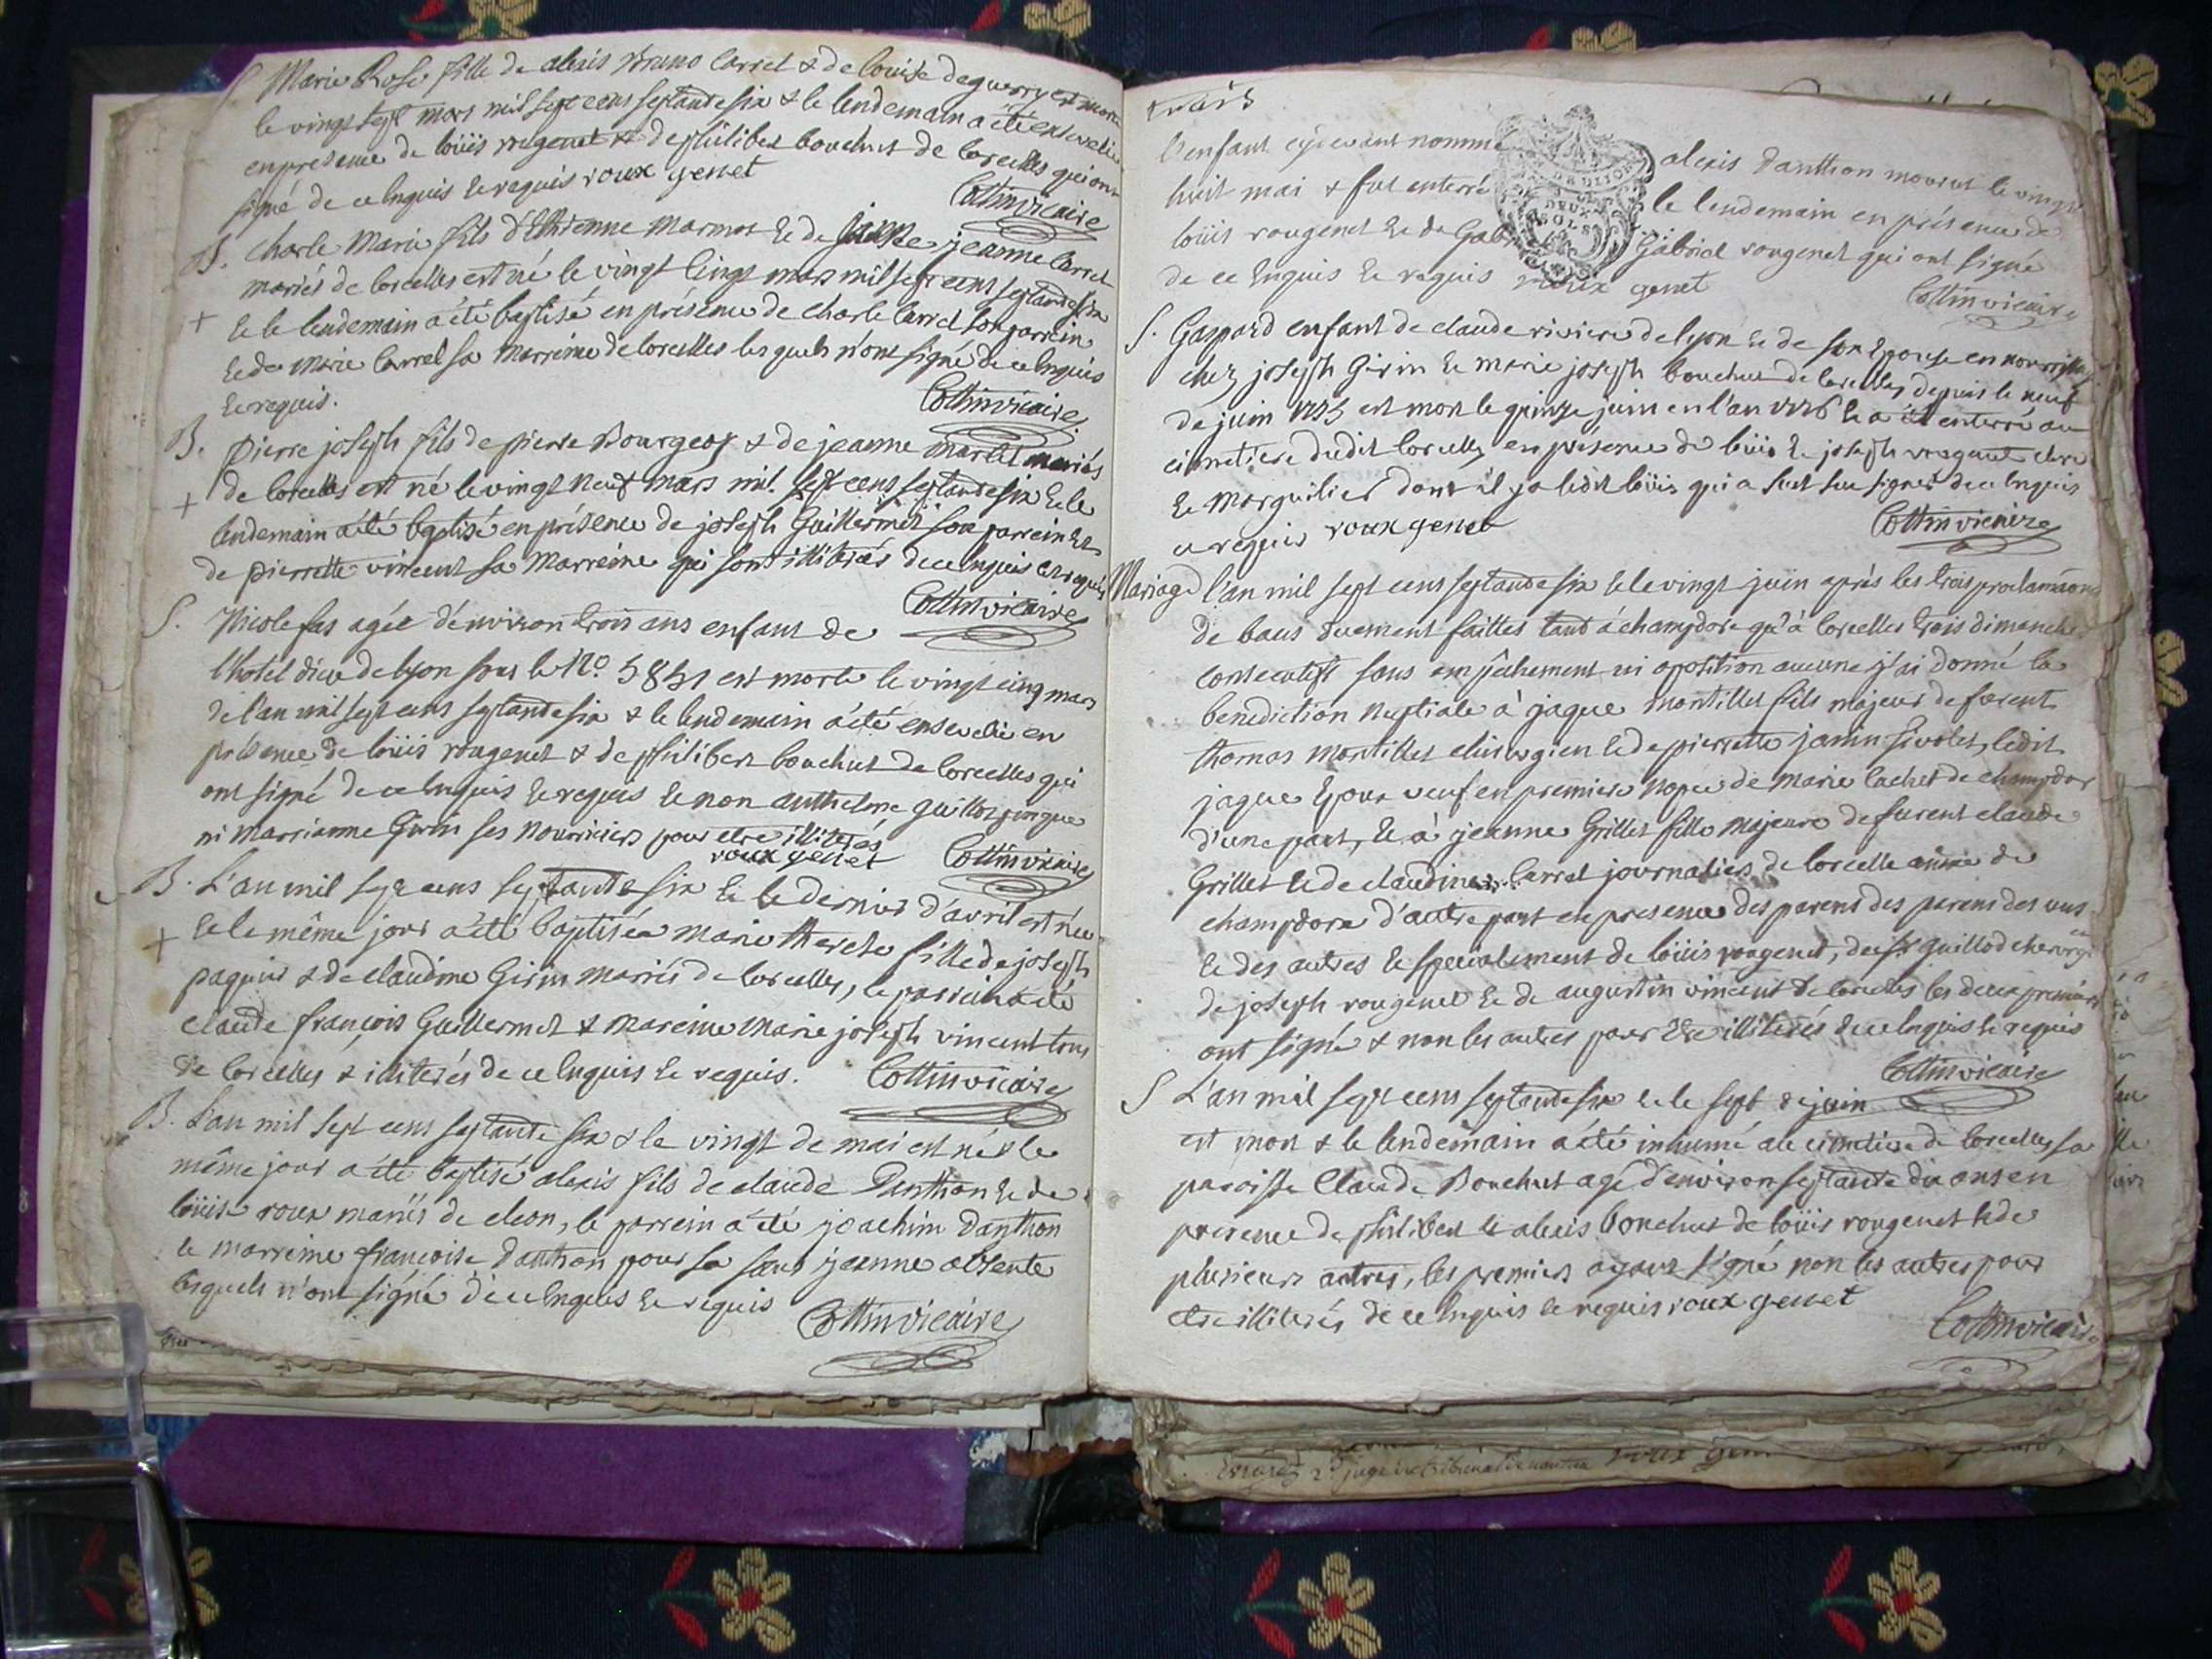 S. Marie Rose fille de alexis Bruno Carrel & de louise deguerry est morte
le vingt sept mars mil sept cens septante six & le lendemain a été ensevelie
en presence de loüis rougenet & de philibert bouchut de Corcelles qui ont
signé de ce enquis & requis roux genet
Cottin vicaire
B. Charle Marie fils d'Ethienne Marmot & de jeanne Carrel
mariés de Corcelles est né le vingt cinqt mars mil sept cens septante six
+ & le lendemain a été baptisé en présence de Charle Carrel son parrein
& de Marie Carrel sa marreine de Corcelles lesquels n'ont signé de ce enquis
& requis.
Cottin vicaire
B. Pierre joseph fils de pierre Bourgeos & de jeanne martel mariés
+ de Corcelles est né le vingt neuf mars mil sept cens septante six & le
lendemain a été baptisé en présence de joseph Guillermet son parrein &
de pierrette vincent sa marreine qui sont illiterés de ce enquis et requis
Cottin vicaire
S. agée d'environ trois ans enfant de
l'hotel dieu de lyon sous le No. 5851 est morte le vingt cinq mars
de l'an mil sept cens septante six & le lendemain a été ensevelie en
présence de loüis rougenet & de philibert bouchut de Corcelles qui
ont signé de ce enquis & requis & non anthelme guillot
ni Marrianne Girin ses nourriciers pour etre illiterés
roux genet Cottin vicaire
B. L'an mil sept cens septante six & le dernier d'avril est née
+ & le même jour a été baptiséa marie therese fille de joseph
paquier & de claudine Girin mariés de Corcelles, le parrein a été
claude françois Guillermet & mareine Marie joseph vincent tous
de Corcelles & illiterés de ce enquis & requis. Cottin vicaire
B. L'an mil sept cens septante six & le vingt de mai est né & le
même jour a été baptisé alexis fils de claude Danthon & de
loüise roux mariés de cleon, le parrein a été joachim danthon
& marreine françoise danthon pour sa sœur jeanne absente
lesquels n'ont signé de ce enquis & requis Cottin vicaire
l'enfant cy devant nommé alexis danthon mourut le vingt
huit mai & fut enterré le lendemain en présence de
loüis rougenet & de Gabriel rougenet qui ont signé
de ce enquis & requis roux genet
Cottin vicaire
S. Gaspard enfant de claude riviere de lyon & de son Epouse en nourrissage
chez joseph Girin & marie joseph bouchut de Corcelles depuis le neuf
de juin 1775 est mort le quinze juin en l'an 1776 & a été enterré au
cimetiere dudit Corcelles en présence de loüis & joseph rougenet clerc
& Marguilier dont il y a ledit loüis qui a signer de ce enquis
et requis roux genet Cottin vicaire
Mariage l'an mil sept cens septante six & le vingt juin après les trois proclamaons
de bans duement faittes tant à champdore qu'à Corcelles trois dimanches
consecutifs sans empêchement ni oposition aucune j'ai donné la
benediction nuptiale à jaque montillet fils majeur de forent
thomas montillet chirurgien & de pierrette janin sivolet, ledit
jaque Epoux veuf en premiere nopce de marie lachet de champdor
d'une part, & à jeanne Grillet fille majeure de furent claude
Grillet & de claudine Carrel journaliers de Corcelle de
champdore d'autre part en presence des parens des parens des uns
& des autres & specialement de loüis rougenet, de guillod chirurgien
de joseph rougenet & de augustin vincent de Corcelles les deux premiers
ont signé & non les autres pour Etre illiterés de ce enquis & requis
Cottin vicaire
S L'an mil sept cens septante six & le sept de juin
est mort & le lendemain a été inhumé au cimetiere de Corcelles sa
paroisse Claude Bouchut agé d'environ septante dix ans en
presence de philibert & alexis bouchut de loüis rougenet & de
plusieurs autres, les premiers ayant signé non les autres pour
etre illiterés de ce enquis & requis roux genet
Cottin vicaire